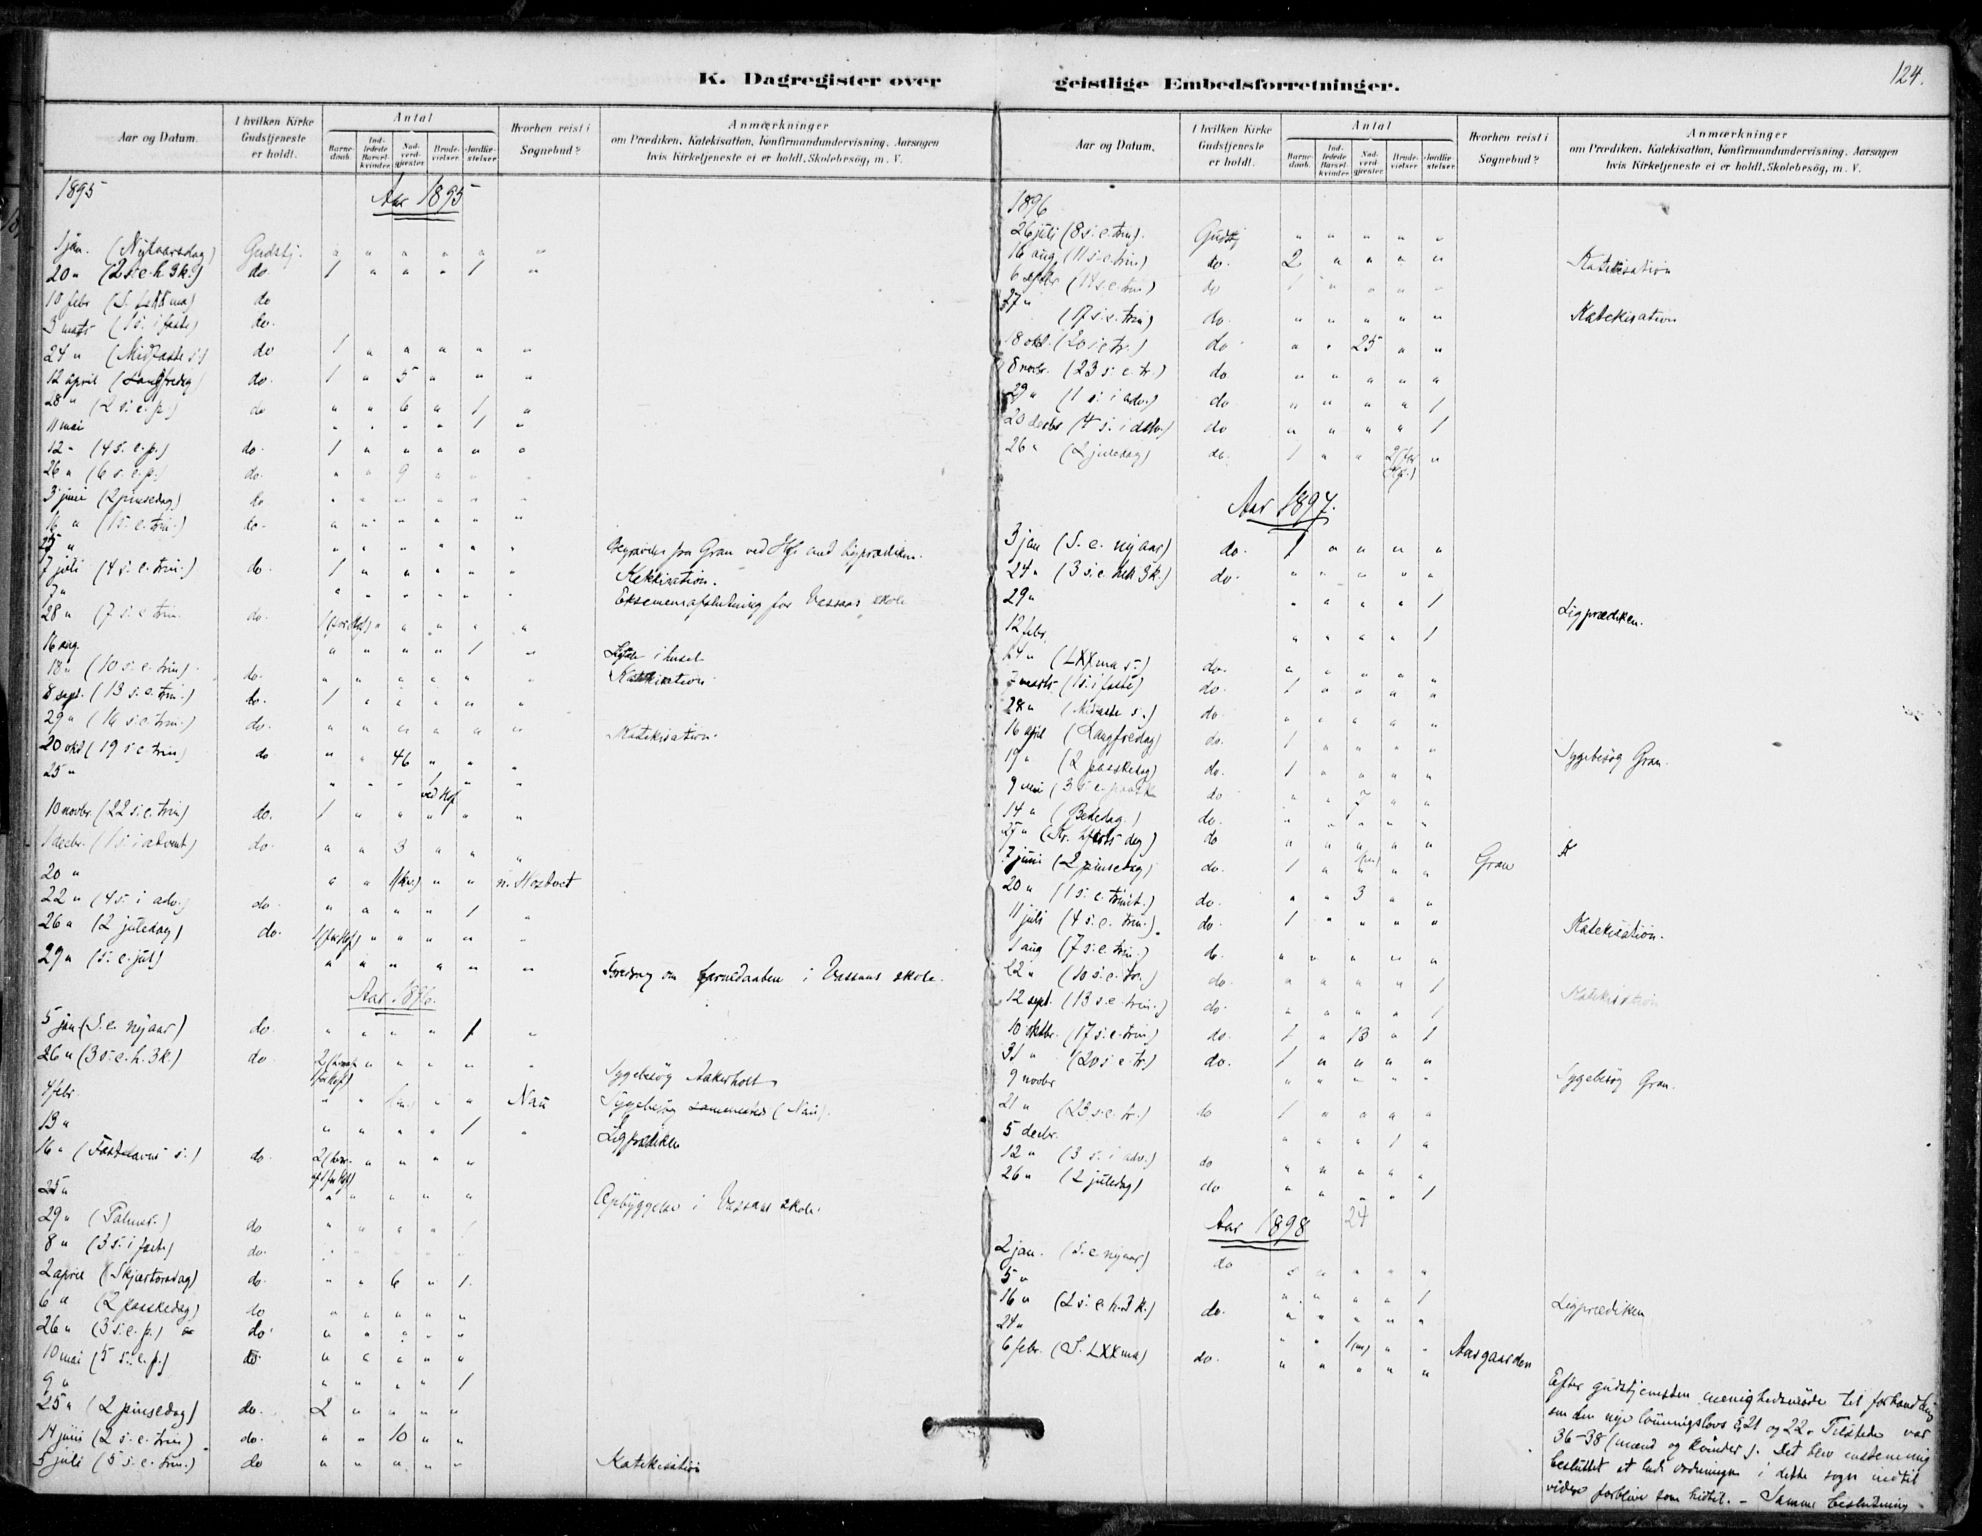 K. Dagregister over geistlige Embedsforretninger.
124.
Aar og Datum.
I hvilken Kirke Gudstjeneste er holdt.
Antal
Barnedaab.
Indledede Barselkvinder.
Nadverdgjester
Brudevielser
Jordfæstelser
Hvorhen reist i Sognebud?
Anmærkninger
om Prædiken, Katekisation, Konfirmandundervisning, Aarsagen
hvis Kirketjeneste ei er holdt, Skolebesög, m. V.
1895
Aar 1895
1 jan. (Nytaarsdag) Gudstj. " " " " " "
20 " (2 s. e. h. 3 k.) do 1 " " " 1 "
10 febr (S. LXXma) do
3 marts (1 s. i faste) do.
24 " (Midfaste s.) do 1 " " " " "
12 april (Langfredag) do. 1 " 5 " " "
28 " (2 s. e. p.) do " " 6 " 1 "
11 mai " " " " 1 "
12 " (4 s. e. p.) do. 1 " " " " "
26 " (6 s. e. p.) do. " " 9 " " "
3 juni (2 pinsedag) do " " " " " "
16 " (1 s. e. trin.) do. " " " " " "
25 " " " " " " " fra Gran ved Hof med ligprædiken.
7 juli (4 s. e. trin.) do. 1 " " " " " Katekisation.
7 " " " " " " " Eksamensafslutning for Vassaas skole
28 " (7 s. e. trin. do. 1 (for Hof) " " " " "
16 aug. " " " " 1 " i huset
18 " (10 s. e. trin) do. " " " " " " Katekisation
8 sept. (13 s. e. trin.) do. 1 " " " " "
29 " (16 s. e. trin.) do. " " " " " " Katekisation.
20 okt (19 s. e. trin) do " " 46 " " "
25 " " " " 1 ved Hof " "
10 novbr. (22 s. e. trin) do. 1 " " " " "
1 decbr. (1 s. i advent) do. " " 3 " " "
20 " " " 1(kv.) " " n. Skoltvet
22 " (4 s. i adv.) do. " " " " 1 "
26 " (2 juledag) do. 1 (for Hof) " " " " "
29 " (s. e. jul) " " " " " " Foredrag om barnedaaben i Vassaas skole.
Aar 1896.
5 jan (S. e. nyaar) do. " " " " 1 "
26 " (3 s. e. h. 3 k.) do 2 1 for Hof) " " " " " Sygebesög Aakerholt
4 febr " " " " Nau Sygebesög sammesteds (Nau).
13 " " " " " 1 " Ligprædiken
16 " (Fastelavns s.) do. 2 " " " "
25 " " " " " " Opbyggelse i Vassaas skole.
29 " (Palmes.) do " " " " 1
8 " (3 s. i faste) do.
2 april (Skjærtorsdag) do. " " 6 " 1.
6 " (2 paaskedag) do " " " " "
26 " (3 s. e. p.) do. " " " " "
10 mai (5 s. e. p.) do " " " " "
9 " " " " " 1
25 " (2 pinsedag) do. 2 " " " "
14 juni (2 s. e. trin) do. " " 10 " "
5 juli (5 s. e. trin.) do " " " " " Katekisation
Aar og Datum.
I hvilken Kirke Gudstjeneste er holdt.
Antal
Barnedaab.
Indledede Barselkvinder
Nadverdgjester
Brudevielser
Jordfæstelser
Hvorhen reist i Sognebud?
Anmærkninger
om Prædiken, Katekisation, Konfirmandundervisning, Aarsagen
hvis Kirketjeneste ei er holdt, Skolebesög, m. V.
1896
26 juli (8 s. e. trin). Gudstj " " " " "
16 aug. (11 s. e. trin) do. 2 " " " " Katekisation
6 septbr (14 s. e. trin) do 1 " " " "
27 " (17 s. e. trin) do. " " " " " Katekisation
18 okt. (20 s. e. tr.) do " " 25 " "
8 novbr. (23 s. e. tr.) do " " " " "
29 " (1 s. i adv.) do. " " " " 1
20 decbr (4 s. i adv.) do " " " " 1
26 " (2 juledag) do. 1 " " 2 "
Aar 1897.
3 jan (S. e. nyaar) do. 1 " " " "
24 " (3 s. e. hel. 3 k.) do. " " " " "
29 " " " " " 1 Ligprædiken.
12 febr. " " " " 1
14 " (LXXma s.) do. " " " " "
marts (1 s. i faste) do. 1 " " " "
28 " (Midfaste s.) do. " " " " "
16 april (Langfredag) do. 1 " " " " Sygebesög Gran.
19 " (2 paaskedag) do. 1 " " " "
9 mai (3 s. e. paaske do " " " "
14 " (Bededag.) do. " " " " "
27 " (Kr. himf. dag) do " " " " " K
7 juni (2 pinsedag) do. 1 " " " Gran
20 " (1 s. e. trinit.) do. " " 3 " "
11 juli (4 s. e. trin.). do. 1 " " " " Katekisation.
1 aug (7 s. e. trin.) do. " " " " "
22 " (10 s. e. tr.) do. " " " " 1 Katekisation
12 sept. (13 s. e. trin.) do. " " " " 1
10 oktbr. (17 s. e. trin) do. 1 " 13 " 1
31 " (20 s. e. tr) do. 1 " " " "
9 novbr " " " " " Sygebesög Gran.
21 " (23 s. e. tr.) do 1 " " " "
5 decbr. " " " 1 "
12 " (3 s. i adv.) do " " " " "
26 " (2 juledag) do " " " " 1
Aar 1898 24
2 jan. (S. e. nyaar) do " " " " "
5 " " " " " 1 Ligprædiken
16 " (2 s. e. h. 3 k.) do. " " " " "
24 " " " 1(m) " " Aasgaarden
6 febr. (S. LXXma) do. " " " " "
Efter gudstjenesten menighedsmöde til forhandling
om den nye lönningslovs § 21 og 22. Tilstede var
36-38 (mænd og kvinder). Det blev enstemmig
besluttet at lade ordningen i dette sogn indtil
videre forblive som hidtil. – Samme beslutning